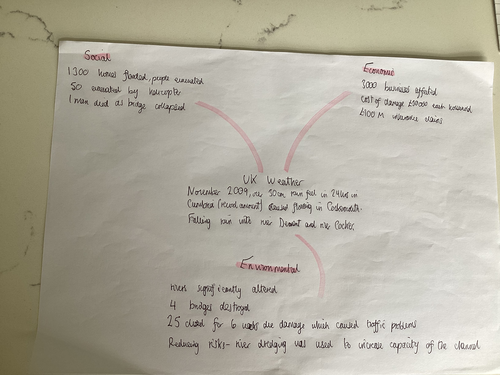 Social
1300 homes flooded, people evacuated
50 evacuated by helicopter
1 man died as bridge collapsed
Economic
3000 business affected
Cost of damage £50000 each household
£100M insurance claims
UK Weather
November 2009, over 30cm rain fell in 24hrs in
Cumbria (record amount) caused flooding in Cockermouth.
Falling rain with river Derwent and river Cocker.
Environmental
rivers significantly altered
4 bridges destroyed
25 closed for 6 weeks due damage which caused traffic problems
Reducing risks - river dredging was used to increase capacity of the channel